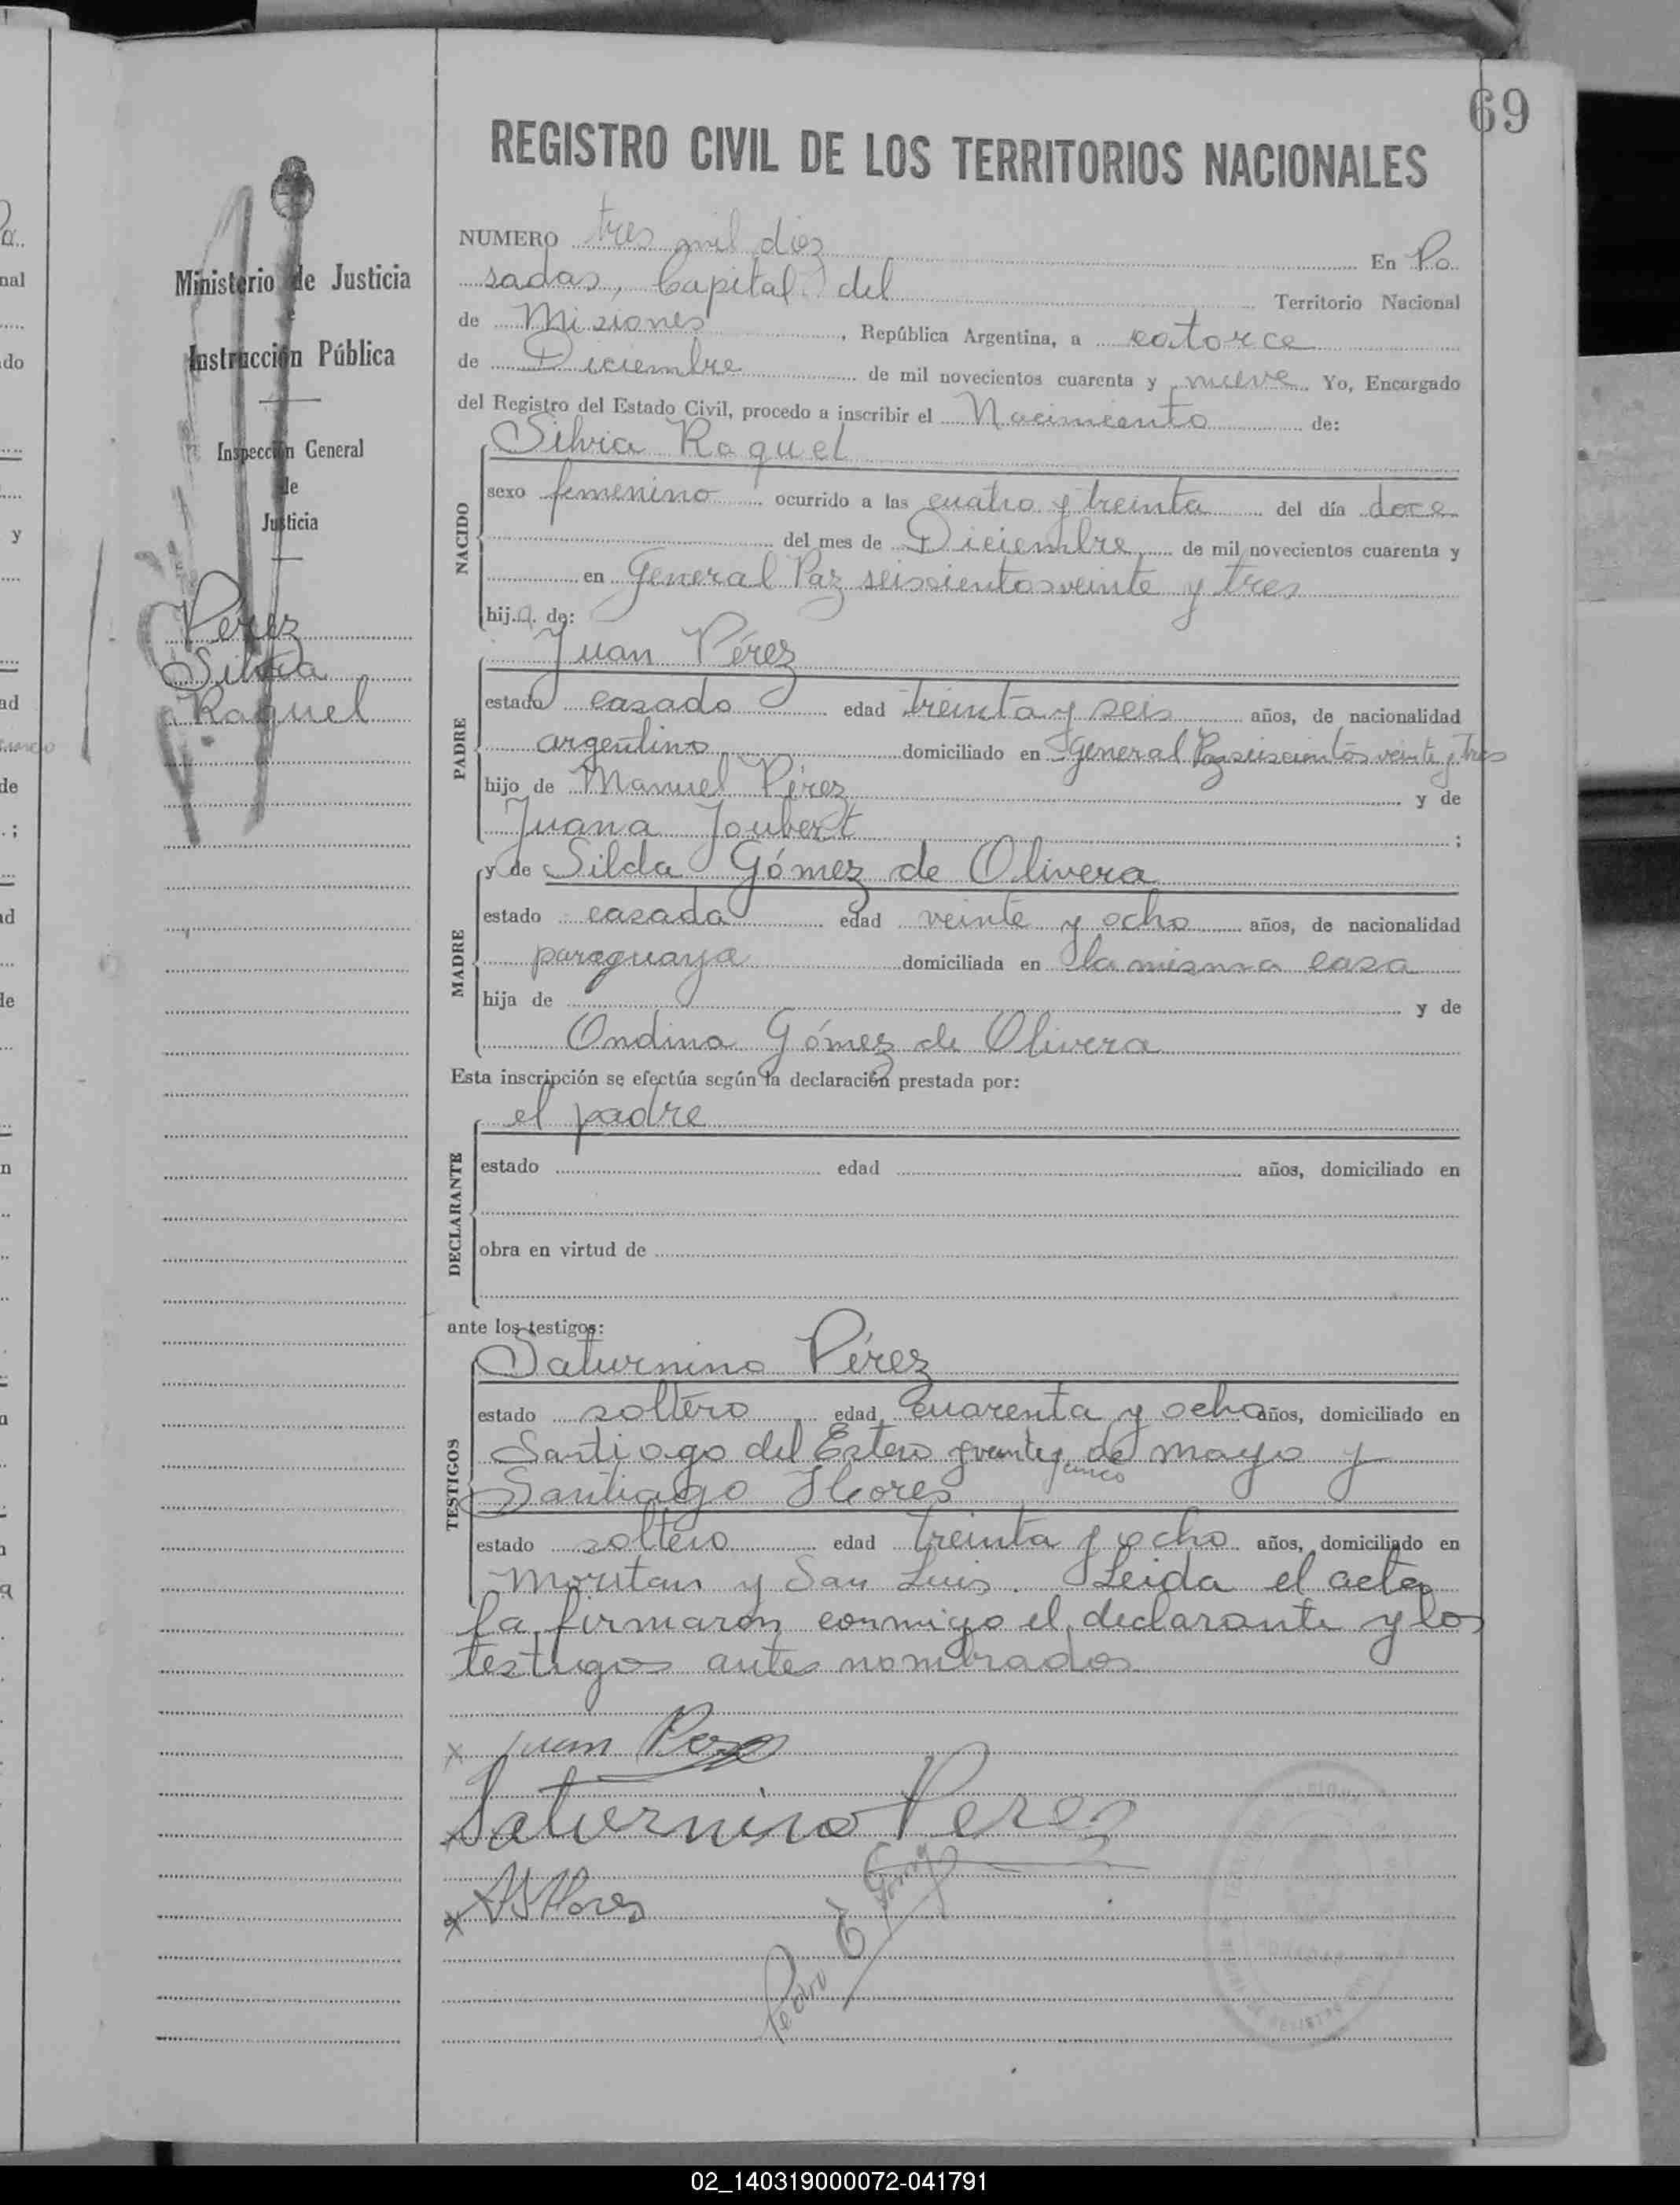 69
REGISTRO CIVIL DE LOS TERRITORIOS NACIONALES
NUMERO tres mil diez En Po
sadas, Capital del Territorio Nacional
de Misiones, República Argentina, a catorce
de Diciembre de mil novecientos cuarenta y nueve Yo, Encargado
del Registro del Estado Civil, procedo a inscribir el Nacimiento de:
Silvia Raquel
NACIDO
sexo femenino ocurrido a las cuatro y treinta del día doce
del mes de Diciembre de mil novecientos cuarenta y
en General Paz seiscientos veinte y tres
hija de:
Juan Pérez
PADRE
estado casado edad treinta y seis años, de nacionalidad
argentino domiciliado en General Paz seiscientos veinte y tres
hijo de Manuel Pérez y de
Juana Joubert ;
y de Silda Gómez de Olivera
MADRE
estado casada edad veinte y ocho años, de nacionalidad
paraguaya domiciliada en la misma casa
hija de y de
Ondina Gómez de Olivera
Esta inscripción se efectúa según la declaración prestada por:
el padre
DECLARANTE
estado edad años, domiciliado en
obra en virtud de
ante los testigos:
Saturnino Pérez
TESTIGOS
estado soltero edad cuarenta y ocho años, domiciliado en
Santiago del Estero y veinte y cinco de mayo y
Santiago Flores
estado soltero edad treinta y ocho años, domiciliado en
Moritan y San Luis. Leida el acta
la firmaron conmigo el declarante y los
testigos antes nombrados
x Juan Perez
x Saturnino Perez
x Flores
Pedro E Gomez
Ministerio de Justicia
Instrucción Pública
Inspección General
de
Justicia
Pérez
Silvia
Raquel
02_140319000072-041791